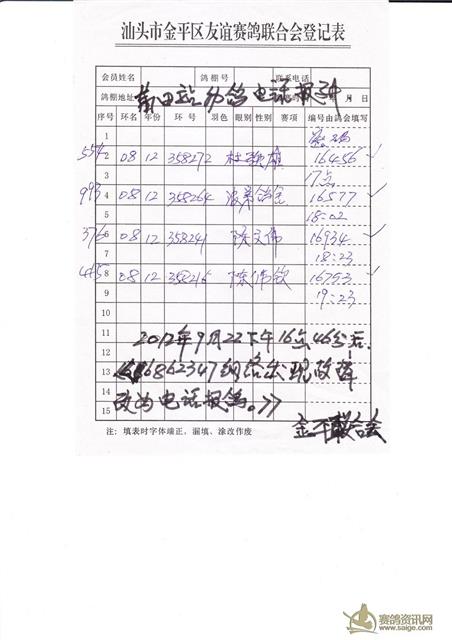 汕头市金平区友谊赛鸽联合会登记表
会员姓名 鸽棚号 联系电话
鸽棚地址 月 日
莆田站 鸽电话报到
序号 环名 年份 环号 羽色 眼别 性别 赛项 编号由鸽会填写
1
2 08 12 358272 16456
3 17点
993 4 08 12 358264 16577
5 18:02
376 6 08 12 358241 陈文伟 16934
7 18:23
8 08 12 358216 陈伟钦 16793
9 19:23
10
11 2012年9月22下午16点46分后.
12
13 6862347网络出现故障
14
15 改为电话报鸽。>>
金平联合会
注:填表时字体端正,漏填、涂改作废
赛鸽资讯网
www.saige.com